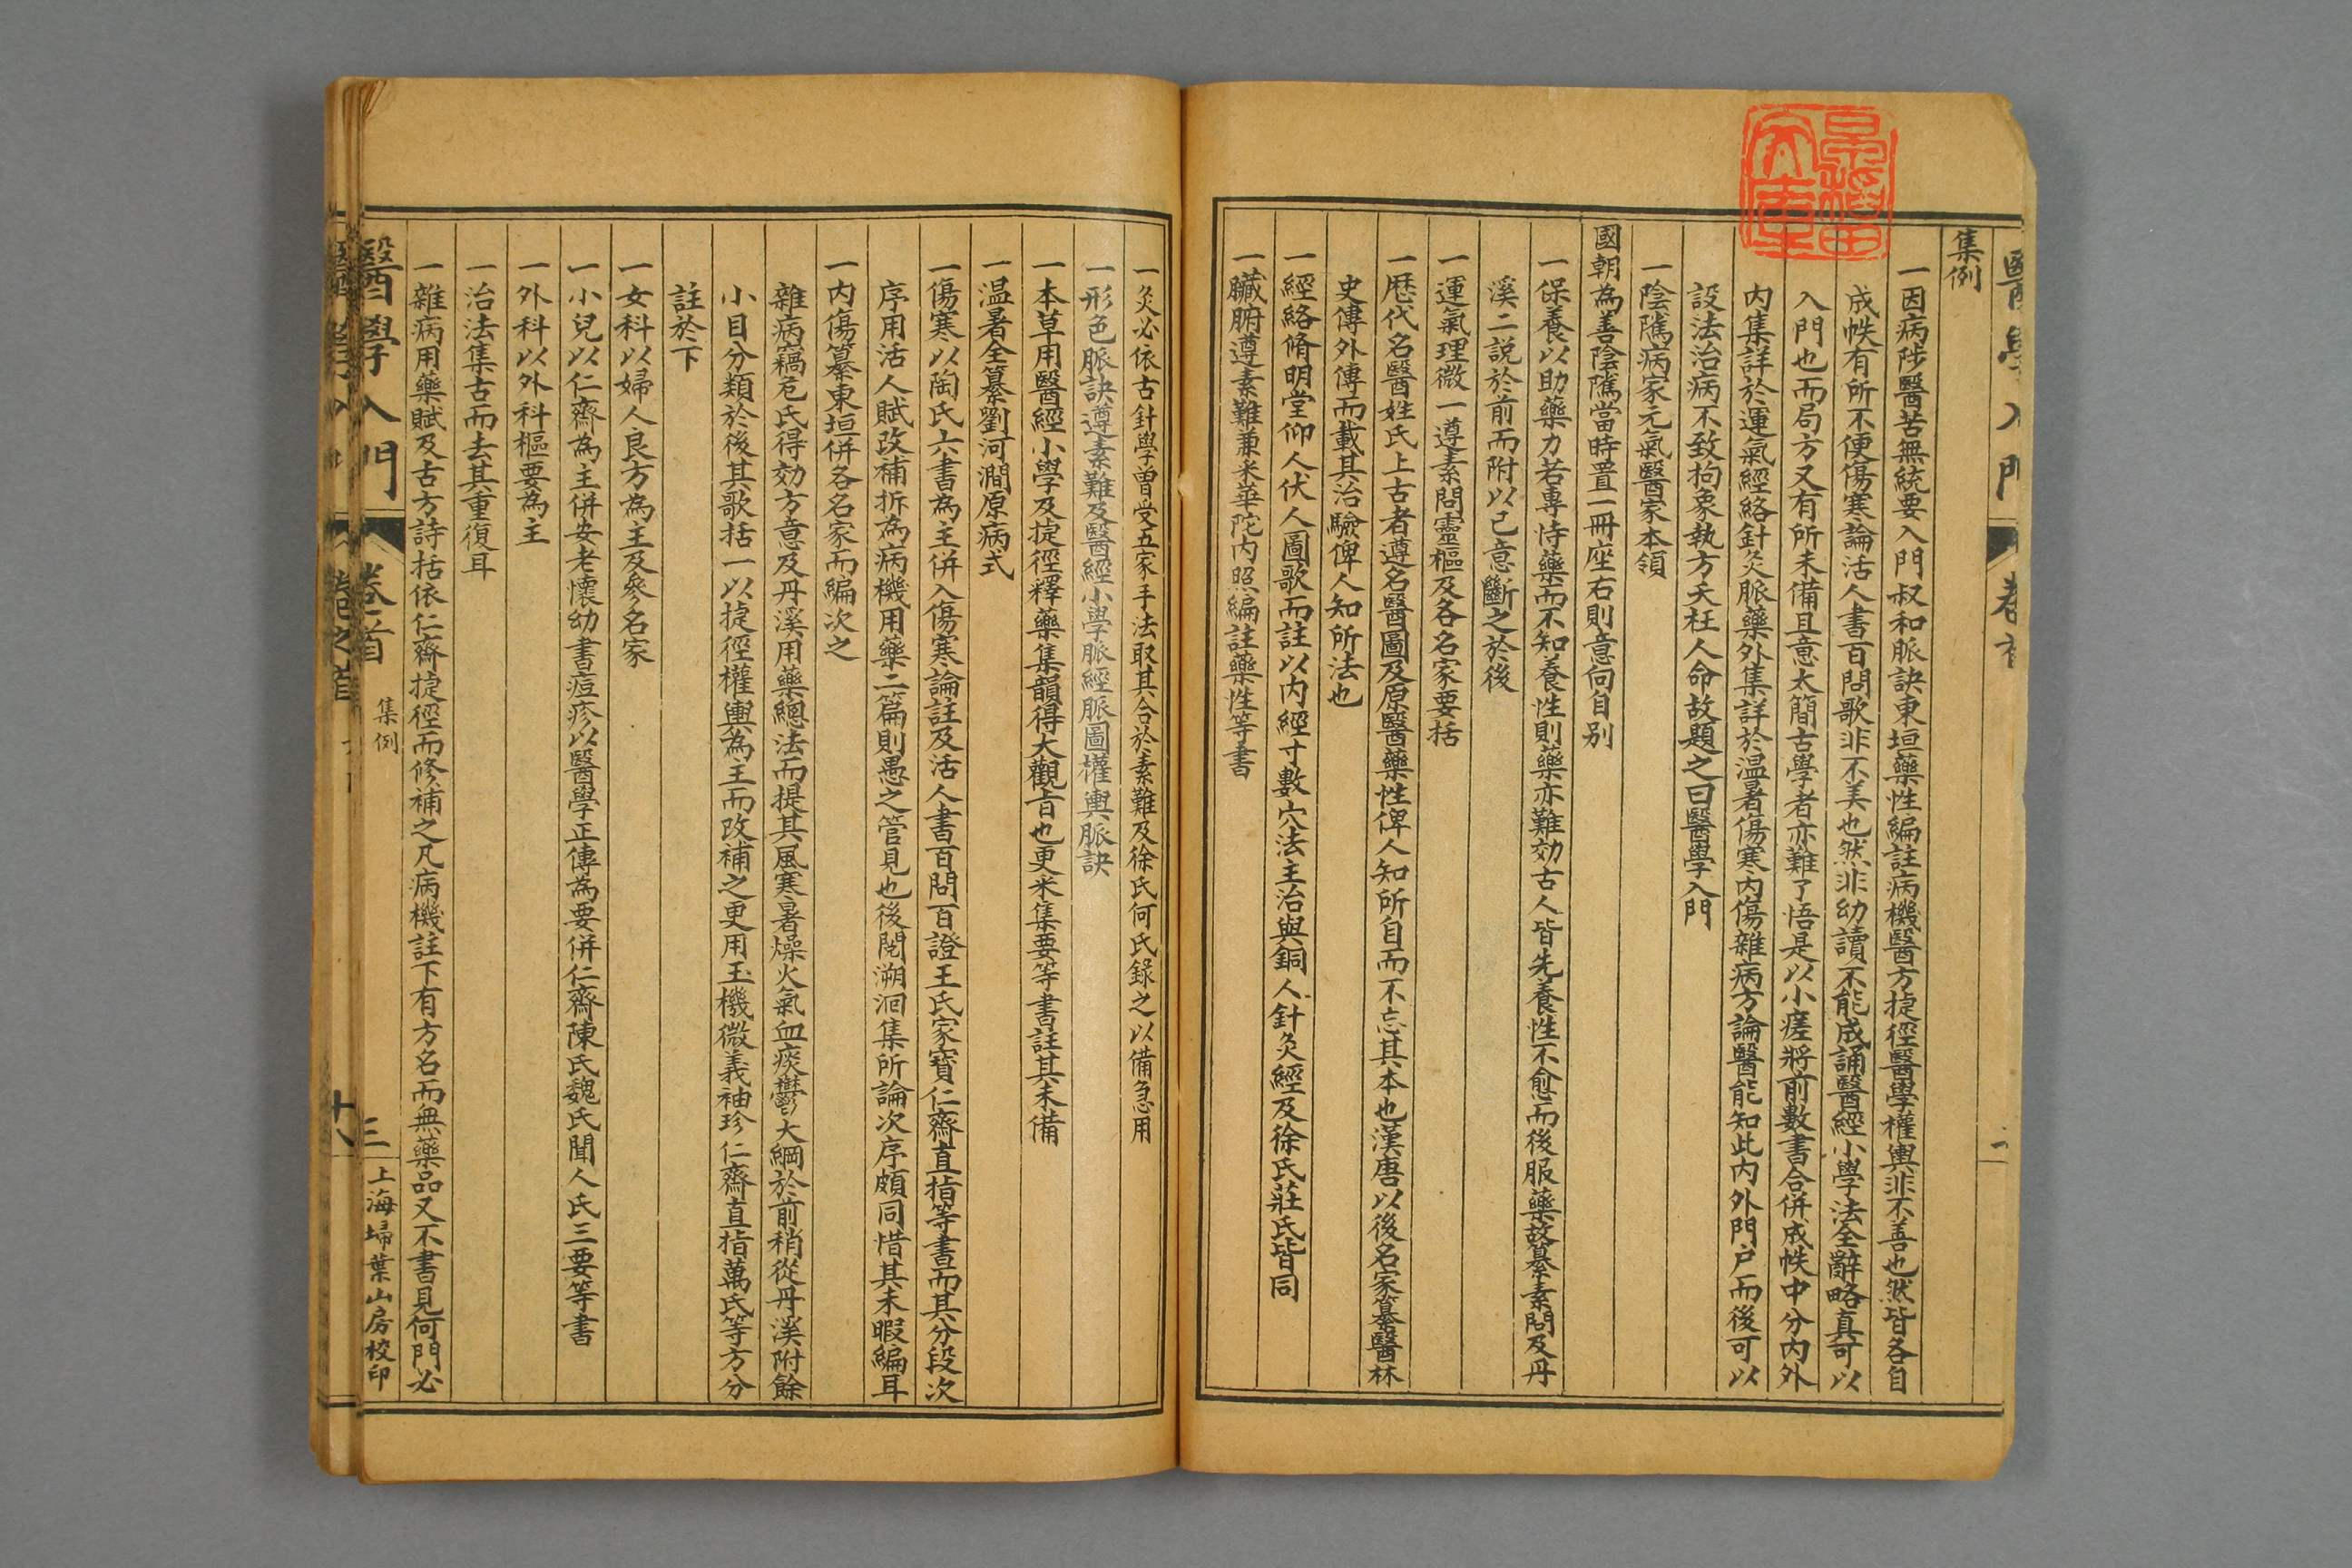 集例
一因病陟醫苦無統要入門叔和脈訣東垣藥性編註病機醫方捷徑醫學權輿非不善也然皆各自
成帙有所不便傷寒論活人書百問歌非不美也然非幼讀不能成誦醫經小學法全辭略真可以
入門也而局方又有所未備且意太簡古學者亦難了悟是以小瘥將前數書合併成帙中分內外
內集詳於運氣經絡針灸脈藥外集詳於温暑傷寒內傷雜病方論醫能知此內外門戶而後可以
設法治病不致拘象執方夭枉人命故題之曰醫學入門
一陰隲病家元氣醫家本領
國朝為善陰隲當時置一冊座右則意向自別
一保養以助藥力若專恃藥而不知養性則藥亦難効古人皆先養性不愈而後服藥故纂素問及丹
溪二說於前而附以己意斷之於後
一運氣理微一遵素問靈樞及各名家要括
一歷代名醫姓氏上古者遵名醫圖及原醫藥性俾人知所自而不忘其本也漢唐以後名家纂醫林
史傳外傳而載其治驗俾人知所法也
一經絡脩明堂仰人伏人圖歌而註以內經寸數穴法主治與銅人針灸經及徐氏莊氏皆同
一臟腑遵素難兼采華陀內照編註藥性等書
一灸必依古針學曾受五家手法取其合於素難及徐氏何氏錄之以備急用
一形色脈訣遵素難及醫經小學脈經脈圖權輿脈訣
一本草用醫經小學及捷徑釋藥集韻得大觀旨也更采集要等書註其未備
一温暑全纂劉河澗原病式
一傷寒以陶氏六書為主併入傷寒論註及活人書百問百證王氏家寶仁齋直指等書而其分段次
序用活人賦改補拆為病機用藥二篇則愚之管見也後閱溯洄集所論次序頗同惜其未暇編耳
一內傷纂東垣併各名家而編次之
雜病竊危氏得効方意及丹溪用藥總法而提其風寒暑燥火氣血痰鬱大綱於前稍從丹溪附餘
小目分類於後其歌括一以捷徑權輿為主而改補之更用玉機微義袖珍仁齋直指萬氏等方分
註於下
一女科以婦人良方為主及參名家
一小兒以仁齋為主併安老懷幼書痘疹以醫學正傳為要併仁齋陳氏魏氏聞人氏三要等書
一外科以外科樞要為主
一治法集古而去其重復耳
一雜病用藥賦及古方詩括依仁齋捷徑而修補之凡病機註下有方名而無藥品又不書見何門必
醫學入門 卷首 集例 三 上海埽葉山房校印